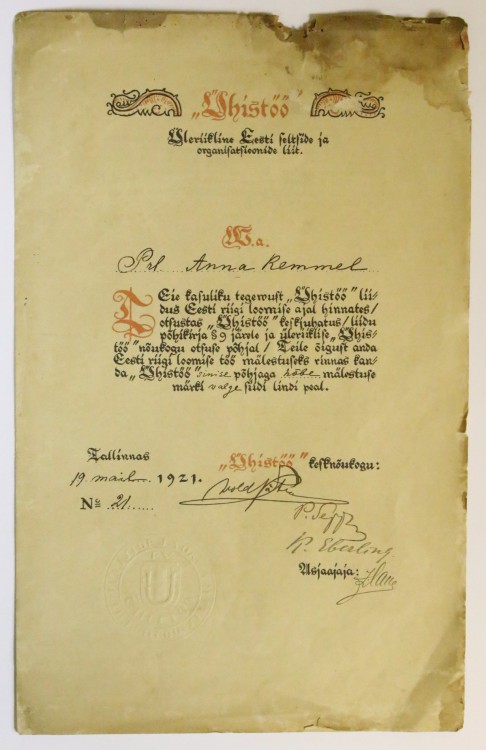 „Ühistöö”
Üleriikline Eesti seltside ja
organisatsioonide liit.
W.a.
Prl. Anna Remmel
Teie kasuliku tegewust „Ühistöö” lii-
dus Eesti riigi loomise ajal hinnates/
otsustas „Ühistöö” keskjuhatus/ liidu
põhikirja § 9 järele ja üleriiklise „Ühis-
töö” nõukogu otsuse põhjal/ Teile õigust anda
Eesti riigi loomise töö mälestuseks rinnas kan-
da „Ühistöö” sinise põhjaga hõbe mälestuse
märki valge siidi lindi peal.
Tallinnas
„Ühistöö” kesknõukogu:
19. mail 1921.
№ 21.
P. Sepp
K. Eberling
Asjaajaja:
U